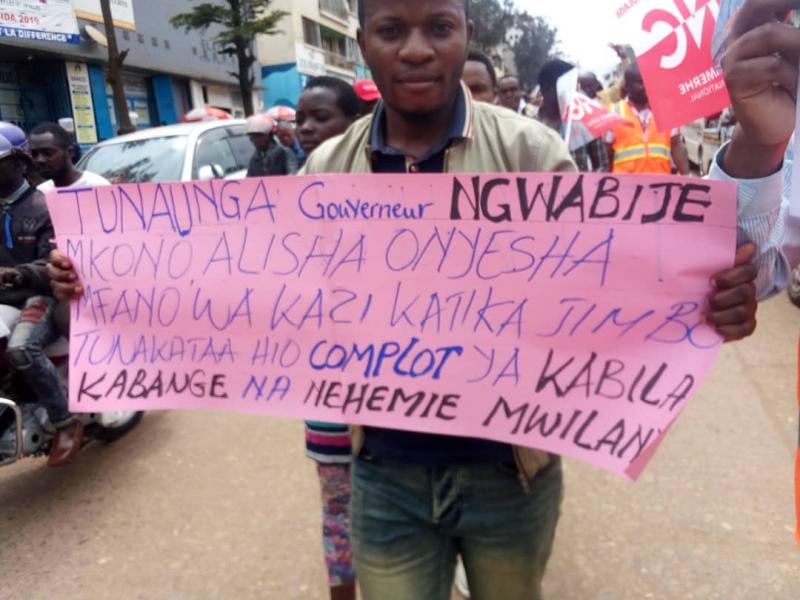 IDA 2019
DIFFERENCE"
TUNAUNGA Gouverneur NGWABIJE
MKONO ALISHA ONYESHA !
MFANO WA KAZI KATIKA JIMBO
TUNAKATAA HIO COMPLOT YA KABILA
KABANGE NA NEHEMIE MWILANY
NC
MERHE
NATIONAL